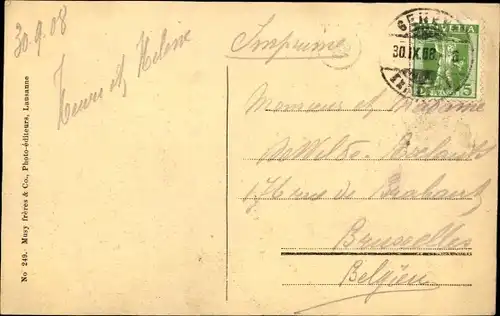 30.9.08
Henri et Helene
No 249. Musy frères & Co., Photo-éditeurs, Lausanne
Imprimé
30.IX.08
HELVETIA
5
Monsieur et Madame
DeWilde-
rue de Brabant
Bruxelles
Belgien